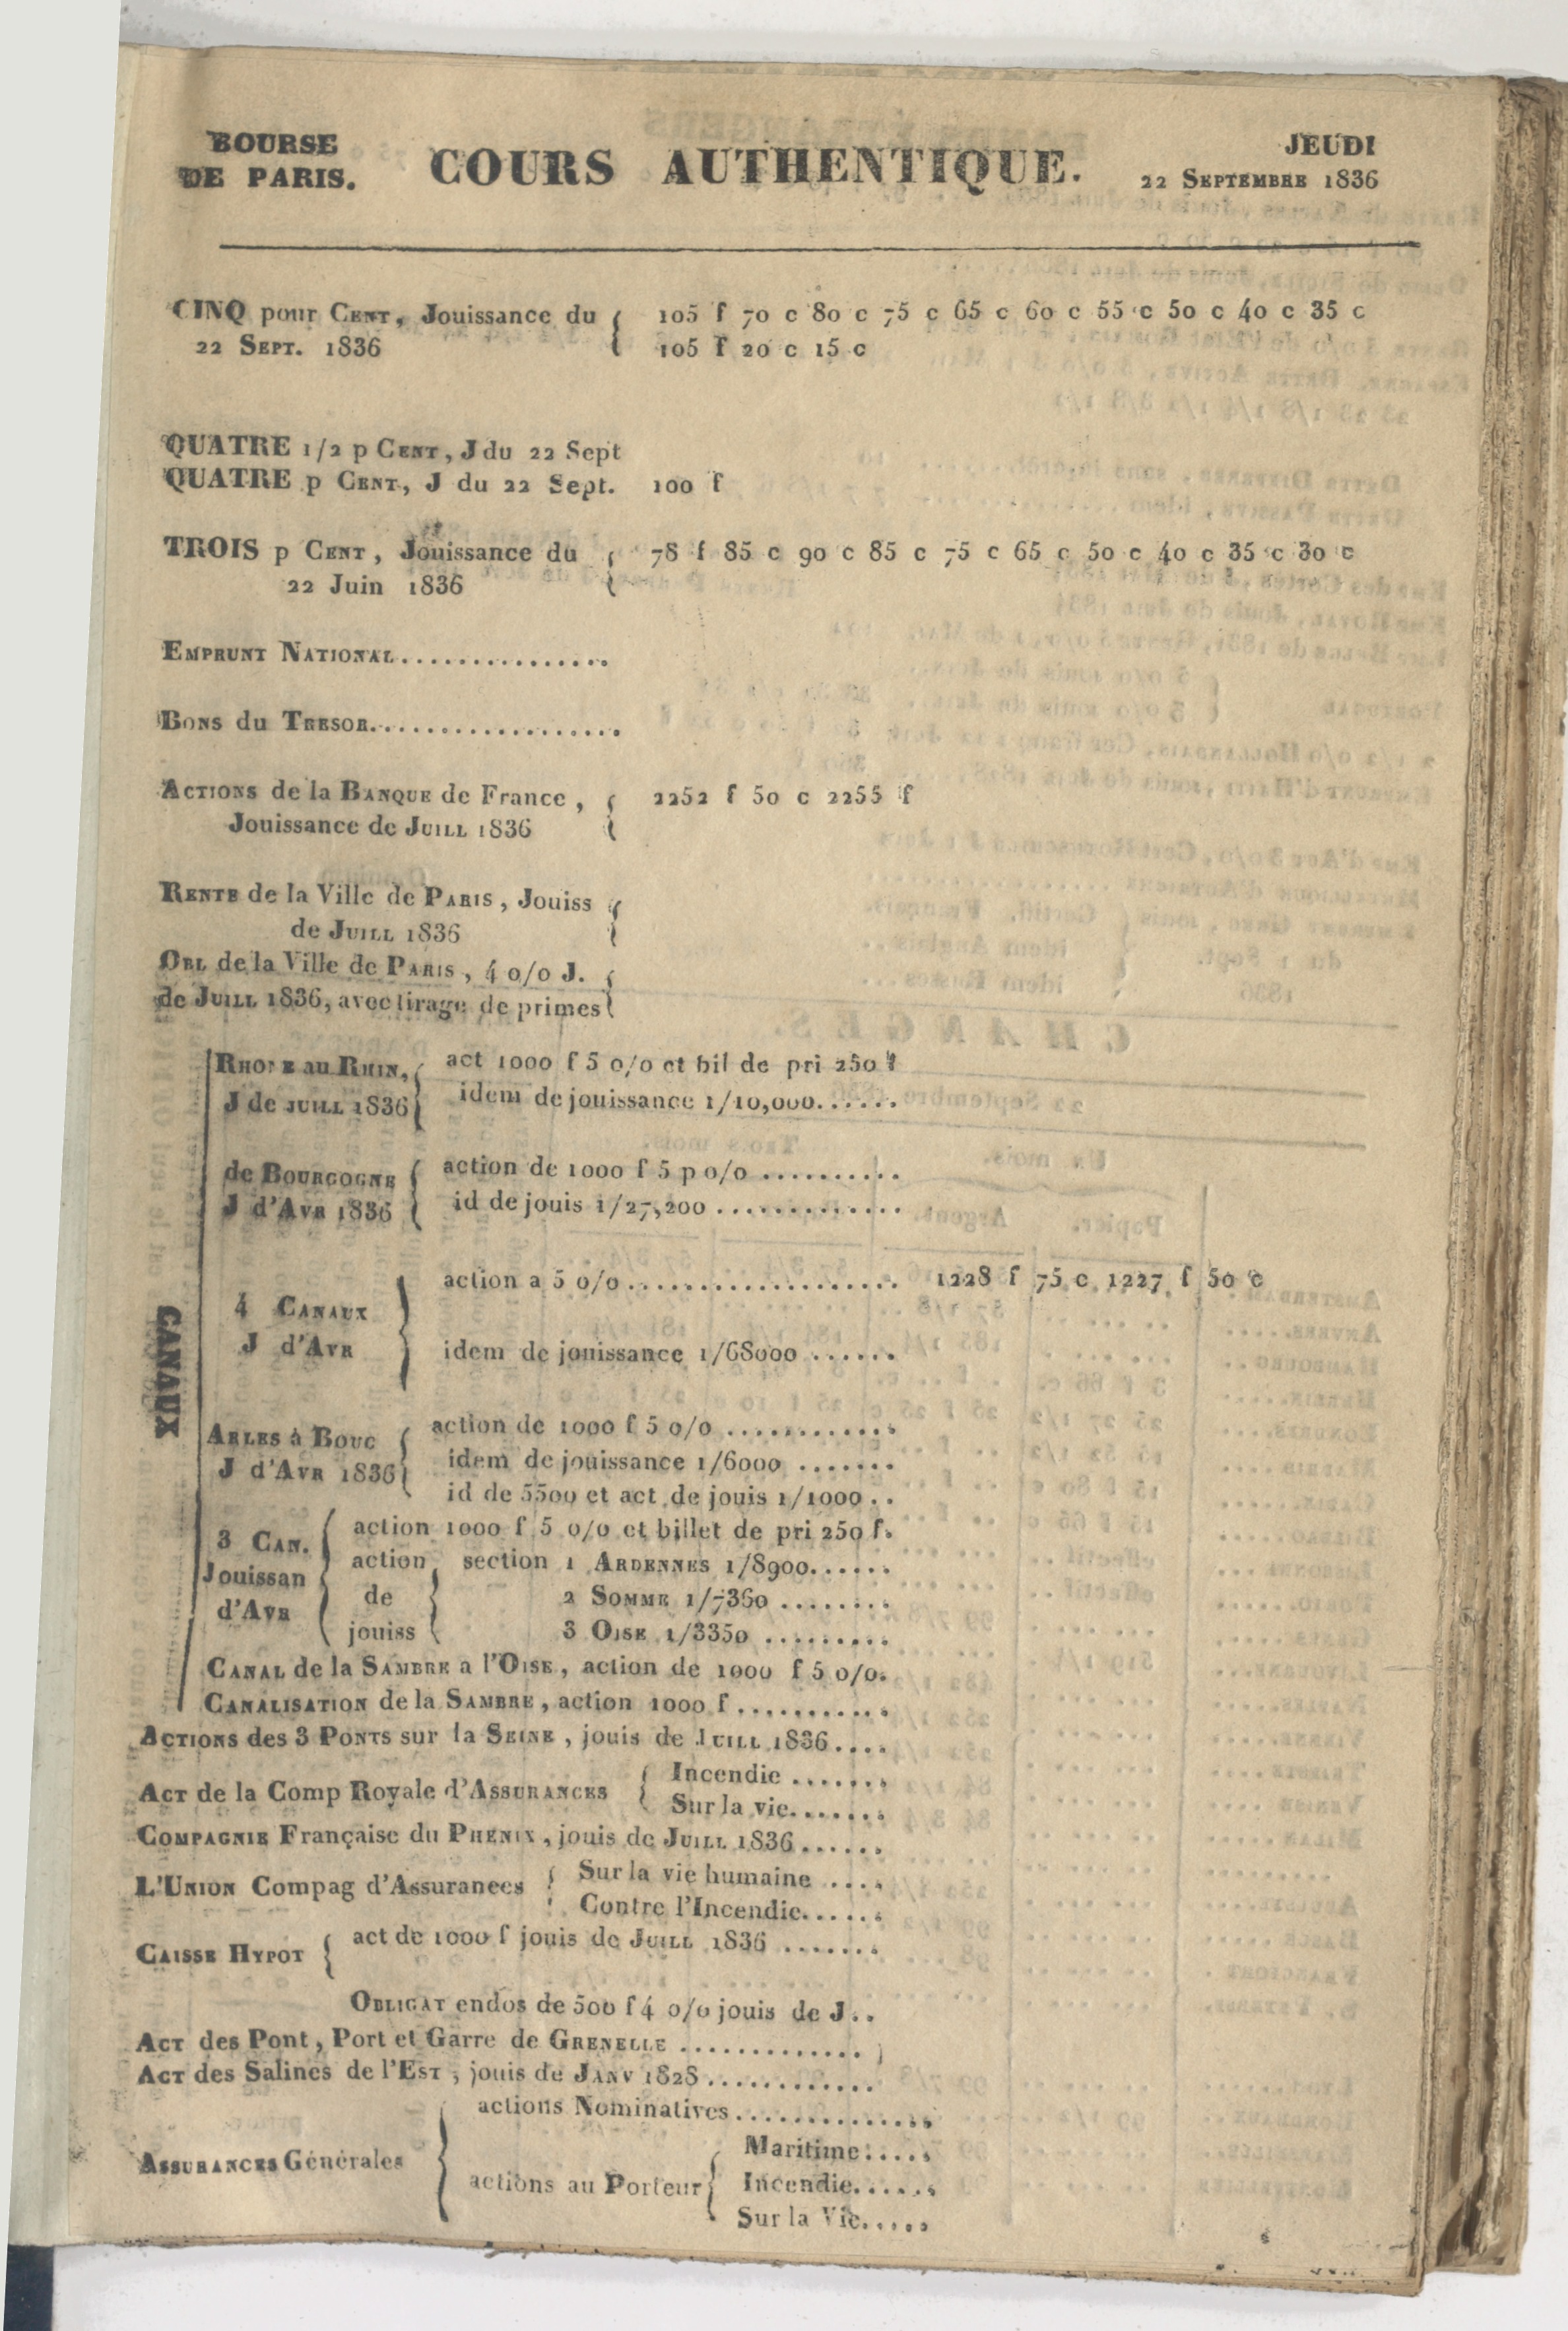 BOURSE
DE PARIS.
COURS AUTHENTIQUE.
JEUDI
22 SEPTEMBRE 1836
CINQ pour CENT, Jouissance du { 105 f 70 c 80 c 75 c 65 c 60 c 55 c 50 c 40 c 35 c
22 SEPT. 1836 105 f 20 c 15 c
QUATRE 1/2 p CENT, J du 22 Sept
QUATRE p CENT, J du 22 Sept. 100 f
TROIS p CENT, Jouissance du { 78 f 85 c 90 c 85 c 75 c 65 c 50 c 40 c 35 c 30 c
22 Juin 1836
EMPRUNT NATIONAL...............
BONS du TRESOR..................
ACTIONS de la BANQUE de France, { 2252 f 50 c 2255 f
Jouissance de JUILL 1836
RENTE de la Ville de PARIS, Jouiss {
de JUILL 1836
OBL de la Ville de PARIS, 4 0/0 J. {
de JUILL 1836, avec tirage de primes
CANAUX
RHONE au RHIN, { act 1000 f 5 0/0 et bil de pri 250 f
J de JUILL 1836 idem de jouissance 1/10,000......
de BOURGOGNE { action de 1000 f 5 p 0/0 ..........
J d'AVR 1836 id de jouis 1/27,200 .............
action a 5 0/0................... 1228 f 75 c 1227 f 50 c
4 CANAUX }
J d'AVR
idem de jouissance 1/68000 ......
ARLES à BOUC { action de 1000 f 5 0/0 ............
J d'AVR 1836 idem de jouissance 1/6000 .......
id de 5500 et act de jouis 1/1000 ..
3 CAN. { action 1000 f 5 0/0 et billet de pri 250 f.
Jouissan action { section 1 ARDENNES 1/8900......
d'AVR de 2 SOMME 1/7360 ........
jouiss 3 OISE 1/3350 .........
CANAL de la SAMBRE a l'OISE, action de 1000 f 5 0/0.
CANALISATION de la SAMBRE, action 1000 f ...........
ACTIONS des 3 PONTS sur la SEINE, jouis de JUILL 1836....
ACT de la Comp Royale d'ASSURANCES { Incendie .......
Sur la vie.......
COMPAGNIE Française du PHENIX, jouis de JUILL 1836......
L'UNION Compag d'Assurances { Sur la vie humaine ....
Contre l'Incendie......
CAISSE HYPOT { act de 1000 f jouis de JUILL 1836 .......
OBLIGAT endos de 500 f 4 0/0 jouis de J..
ACT des Pont, Port et Garre de GRENELLE .............
ACT des Salines de l'EST, jouis de JANV 1828............
actions Nominatives..............
ASSURANCES Générales { Maritime.....
actions au Porteur { Incendie......
Sur la Vie.....